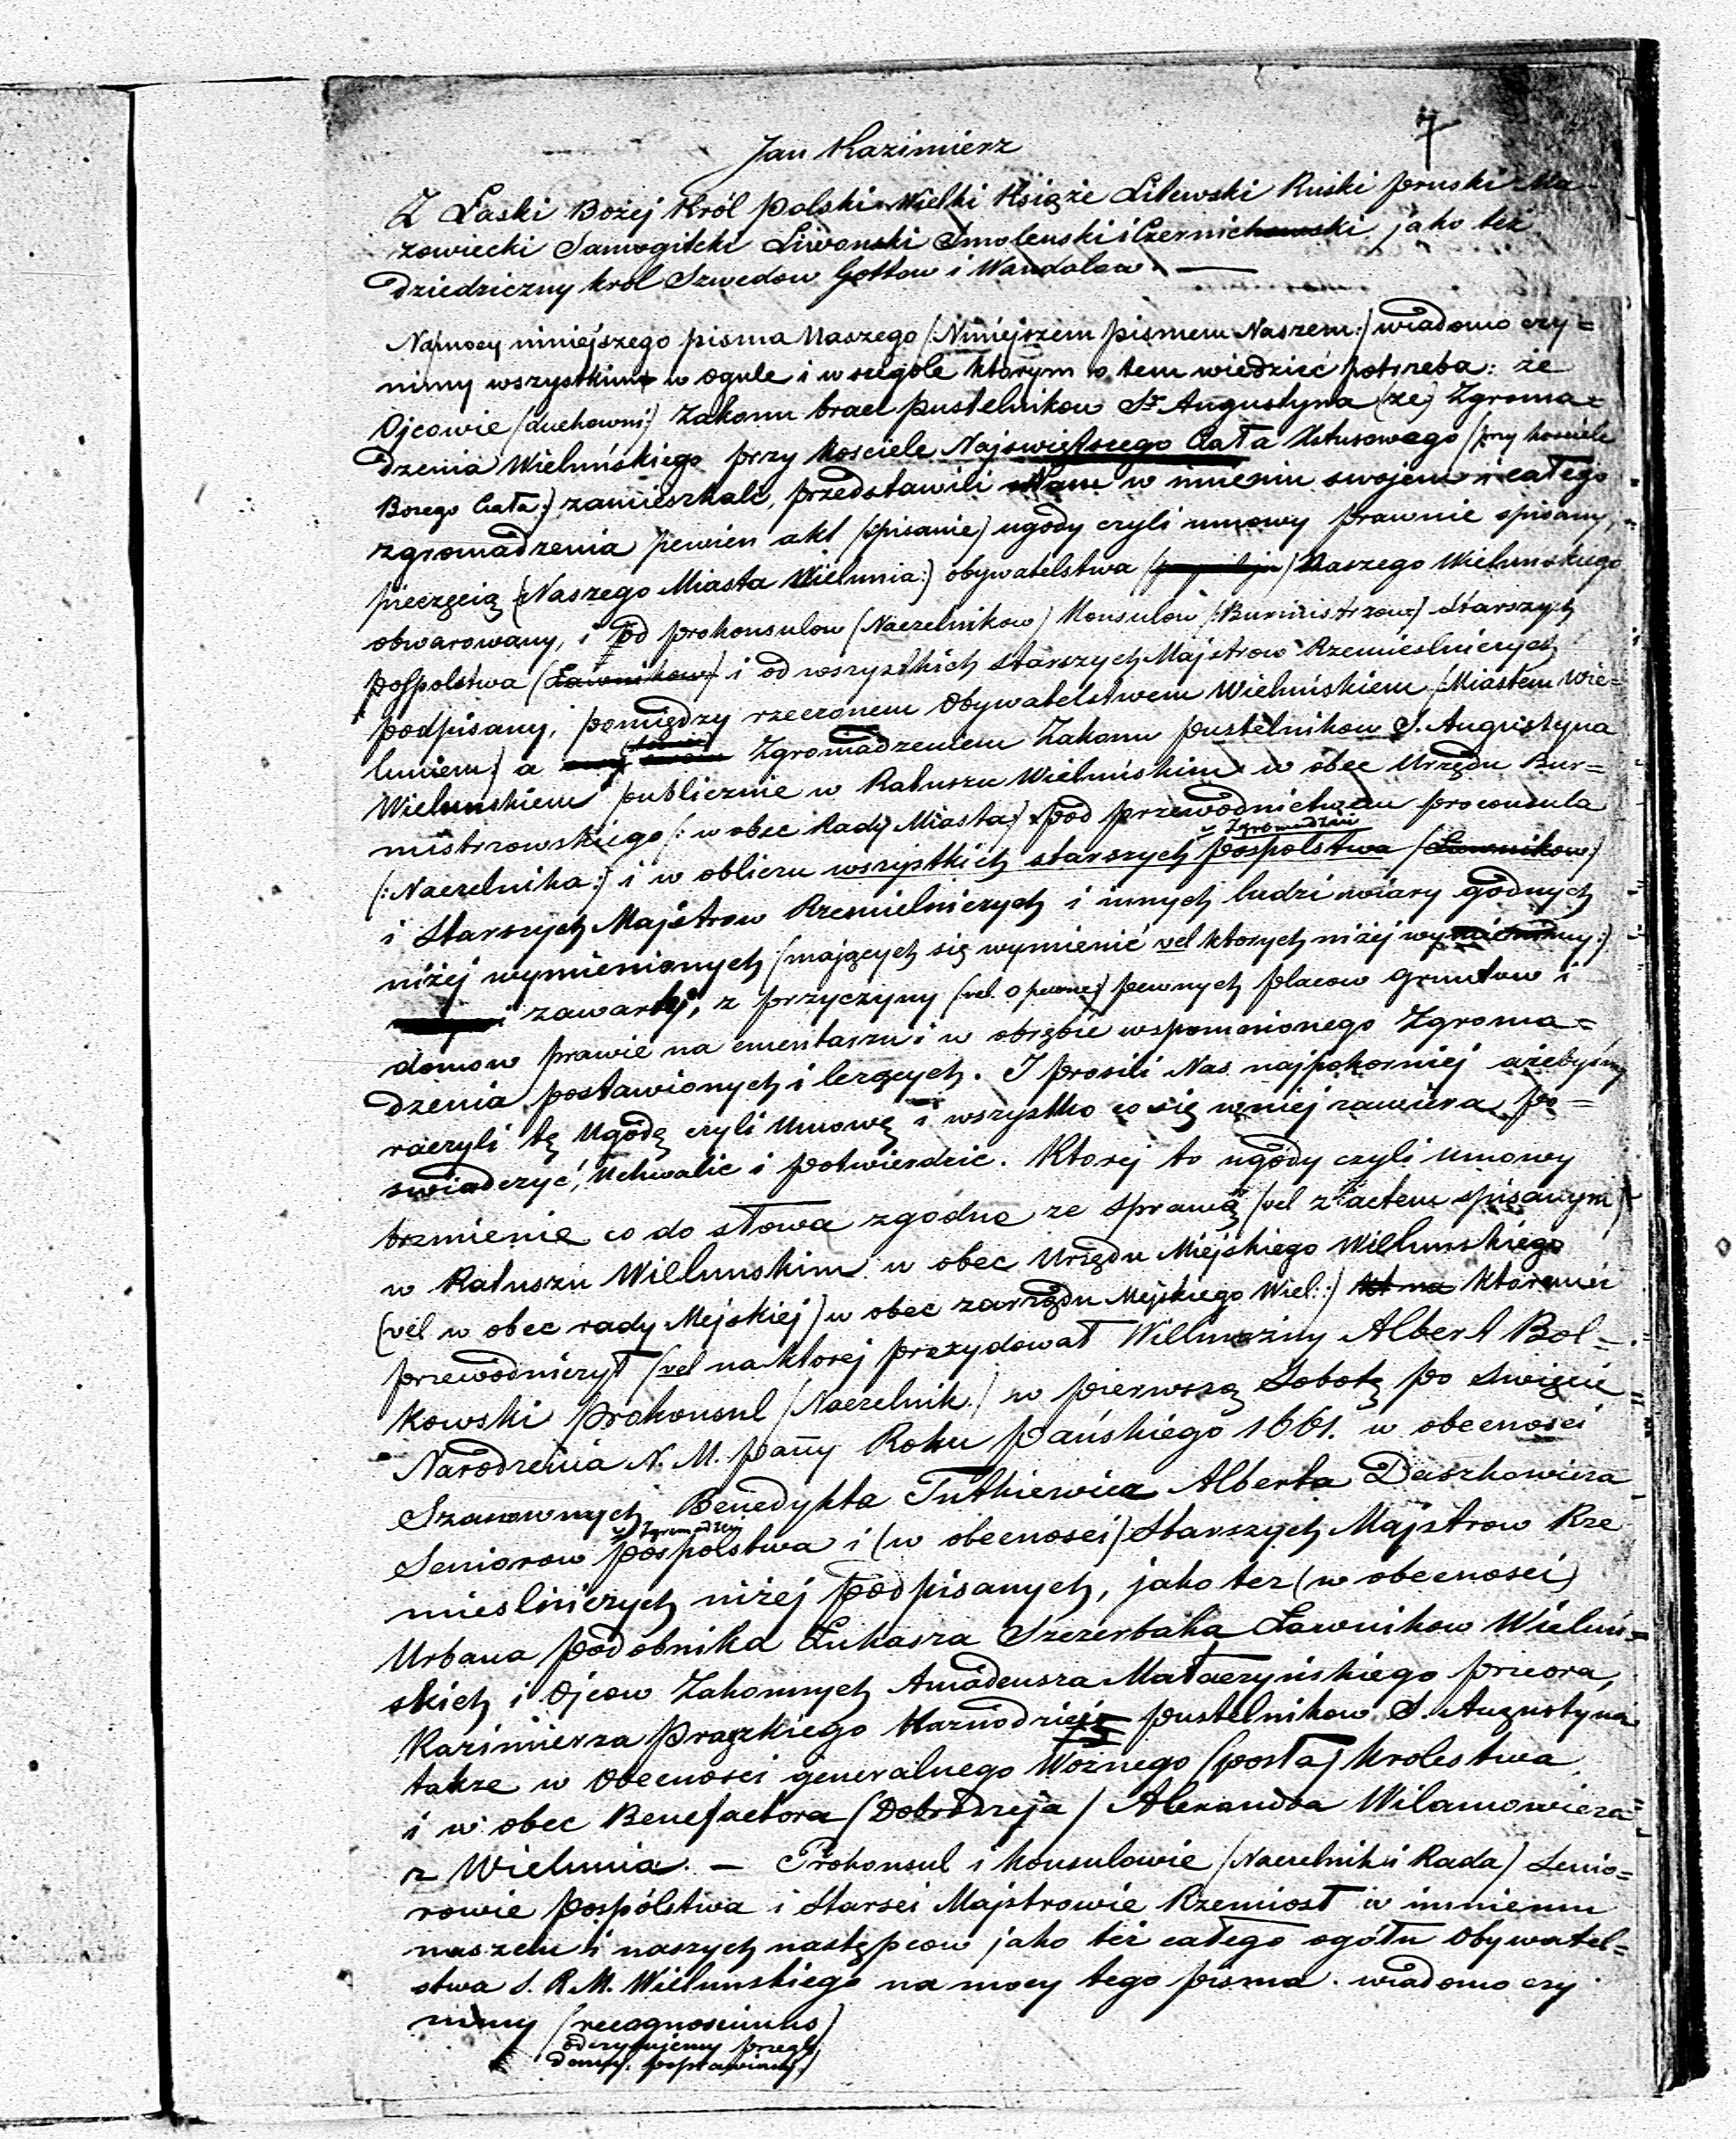 7
Jan Kazimierz
Z Łaski Bożej Król polski Wielki Książe Litewski Ruski pruski Ma-
zowiecki Samogitcki Liwonski Smolenski i Czernichowski jako też
dziedziczny krol Szwedow Gottow i Wandalow. —
Na mocy niniejszego pisma Naszego (Niniejszem pismem Naszem:) wiadomo czy=
nimy wszystkim w ogule i w szegole ktorym o tem wiedzieć potrzeba: że
Ojcowie (duchowni) Zakonu braci pustelnikow Sgo Augustyna (ze) Zgroma=
dzenia Wieluńskiego przy Kosciele Najswiętszego Ciała Xtusowego (przy kosciele
Bozego Ciała:) zamieszkali, przedstawili Nam w imieniu swojem i całego
zgromadzenia pewien akt (spisanie) ugody czyli umowy prawnie spisany,
pieczęcią (Naszego Miasta Wielunia:) obywatelstwa Naszego Wielunskiego
obwarowany, i od prokonsulow (Naczelnikow) Konsulow (Burmistrzow:) Starszych
pospolstwa (Ławnikow) i od wszystkich starszych Majstrow Rzemieslniczych
podpisany, pomiędzy rzeczonem Obywatelstwem Wieluńskiem (Miastem Wie=
luniem) a Zgromadzeniem Zakonu pustelnikow S. Augustyna
Wielunskiem publicznie w Ratuszu Wieluńskim w obec Urzędu Bur=
mistrzowskiego (: w obec Rady Miasta:) pod przewodnictwem proconsula
w Zgromadzeń
(:Naczelnika:) i w obliczu wszystkich starszych pospolstwa (Ławnikow:)
i Starszych Majstrow Rzemielniczych i innych ludzi wiary godnych
niżej wymienionych (mających się wymienić vel ktorych niżej wymienimy:)
zawartej, z przyczyny (vel o pewne) pewnych placow gruntow i
domow prawie na cmentarzu i w obrębie wspomnionego Zgroma=
dzenia postawionych i lerzących. I prosili Nas najpokorniej ażebyśmy
raczyli tę Ugodę czyli Umowę i wszystko co się w niej zawiera po=
swiadczyć, Uchwalic i potwierdzic. Ktorej to ugody czyli umowy
brzmienie co do słowa zgodne ze sprawą (vel z actem spisanym)
w Ratuszu Wielunskim w obec Urzędu Miejskiego Wielunskiego
(vel w obec rady Mejskiej) w obec zarządu Mejskiego Wiel:) któremu
przewodniczył (vel na ktorej prezydował Wielmożny Albert Bol=
kowski prokonsul (Naczelnik) w pierwszą Sobotę po Swięcie
Narodzenia N. M. panny Roku pańskiego 1661. w obecnosci
Szanownych Benedykta Tutkiewicza Alberta Daszkowicza
w Zgromadzeń
Seniorow pospolstwa i (w obecnosci) Starszych Majstrow Rze
mieslniczych niżej podpisanych, jako tez (w obecnosci)
Urbana podobnika Łukasza Szczerbaka Ławnikow Wieluń=
skich i Ojcow Zakonnych Amadeusza Małaczyńskiego prieora,
Kazimierza prazkiego Kaznodzieji pustelnikow S. Augustyna
takze w obecnosci generalnego Woznego (posła) Krolestwa,
i w obec Benefactora (Dobrodzieja) Alexandra Wilamowicza
z Wielunia. — Prokonsul i Konsulowie (Naczelnik i Rada) Senio=
rowie pospólstwa i Starsci Majstrowie Rzemiosł w imieniu
naszem i naszych następcow jako też całego ogółu Obywatel=
stwa J. K. M. Wielunskiego na mocy tego pisma wiadomo czy
nimy (recognoscimus)
odczytujemy przeglą
damy. poprawiamy.)